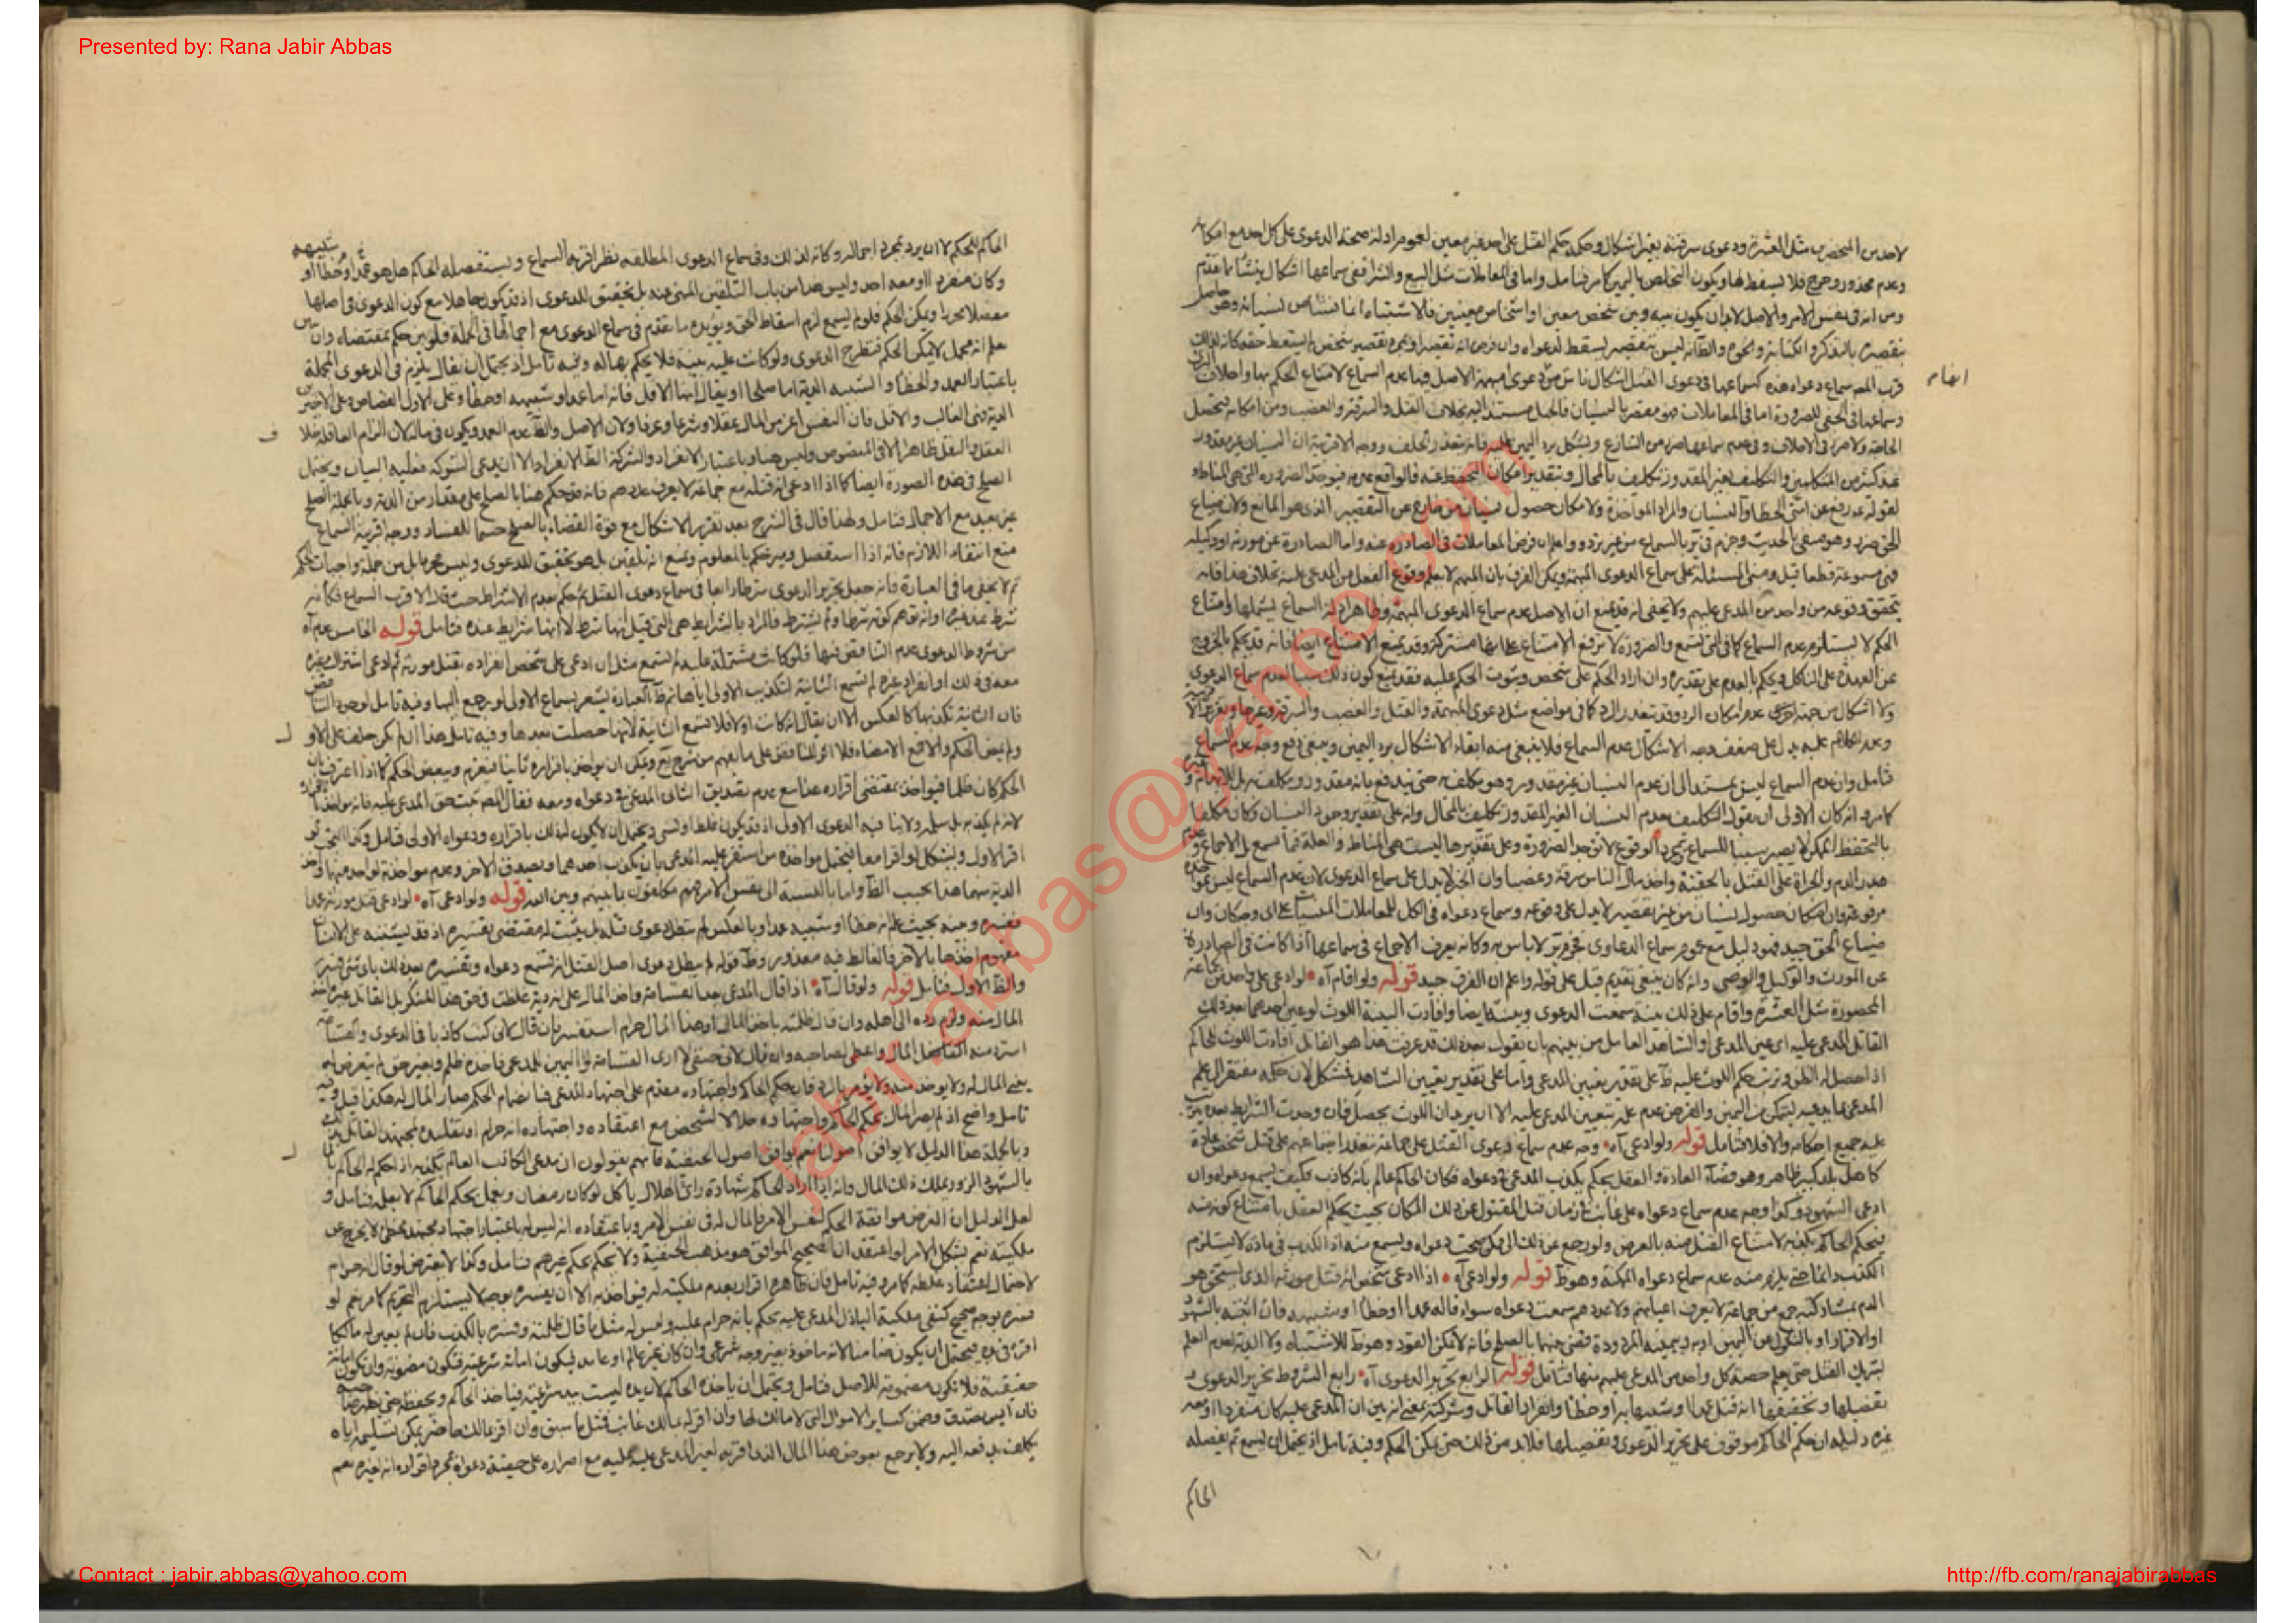 Presented by: Rana Jabir Abbas
لاحد من المنحصرين مثل العشرة ودعوى سرقته بغير اشكال وحكمه حكم القتل على احد غير معين لعموم ادلة صحة الدعوى على كل احد مع امكانه
وعدم محذور وحرج فلا يسقط لها ويكون التخلص باليمين كما مر فتامل واما في المعاملات مثل البيع والشراء ففي سماعها اشكال ينشأ مما تقدم
ومن انه في نفس الامر والاصل لابد ان يكون بينه وبين شخص معين او اشخاص معينين فلا اشتباه انما نشأ من نسيانه وهو حاصل
بتقصيره بالتذكر والكتابة ونحوه والظ انه ليس بتقصير يسقط لدعواه وان فرض انه تقصير او مجرد تقصير شخص لم يسقط حقه كانه لذلك
قرب المصـ سماع دعواه هذه كسماعها في دعوى القتل
وسماعها في الخفي للضرورة اما في المعاملات فهو مقصر بالنسيان فالجهل مستند اليه بخلاف القتل والسرقة والغصب ومن امكانه فيحصل
عند كثير من المتكلمين والتكليف بغير المقدور تكليف بالمحال وبتقدير امكان التحفظ عنه فالواقع عدمه فيوجد الضرورة التي هي المناط
لقوله عـ رفع عن امتي الخطأ والنسيان والمراد المؤاخذة ولامكان حصول نسيان من خارج عن التقصير الذي هو المانع ولان ضياع
الحق ضرر وهو منفي بالحديث وجزم في تر بالسماع من غير تردد واعلم ان فرض المعاملات في الصادرة عنه واما الصادرة عن مورثه او وكيله
فهي مسموعة قطعا قيل ومبنى المسئلة على سماع الدعوى المبهمة ويمكن الفرق بان المبهم لا يعلم وقوع الفعل من المدعى عليه بخلاف هذا فانه
يتحقق وقوعه من واحد من المدعى عليهم ولا يخفى انه قد يمنع ان الاصل عدم سماع الدعوى المبهمة وظاهر ادلة السماع يشملها وامتناع
الحكم لا يستلزم عدم السماع كما في التي تسمع والضرورة لا ترفع الامتناع على انها مشتركة وقد يمنع الامتناع ايضا فانه قد يحكم بالخروج
عن العهدة على الناكل ويحكم بالعدم على تقديره وان اراد الحكم على شخص وثبوت الحكم عليه فقد يمنع كون ذلك سببا لعدم سماع الدعوى
ولا اشكال من جهة اخرى عدم امكان الرد وقد تعذر الرد كما في مواضع مثل دعوى المبهمة والقتل والغصب والسرقة وغيرها
وعدم الكلام عليه يدل على ضعف وجه الاشكال عدم السماع فلا ينبغي منه ابقاء الاشكال برد اليمين وينبغي دفع وجه عدم السماع
فتامل وان عدم السماع ليس بمستند الى ان عدم النسيان غير مقدور وهو مكلف به حتى يندفع بانه مقدور ومكلف به
كما مر وانه كان الاولى ان يقول التكليف بعدم النسيان الغير المقدور تكليف بالمحال وانه على تقدير وجود النسيان وكان مكلفا
بالتحفظ الممكن لا يصير سببا للسماع بمجرد الوقوع لا توجد الضرورة وعلى تقديرها ليست هي المناط والعلة
هدر الدم والجراة على القتل بالحقيقة واخذ مال الناس سرقة وغصبا وان الخبر لا يدل على سماع الدعوى لان عدم السماع ليس
مرفوعة وان امكان حصول نسيان من غير تقصير لا يدل على وقوعه وسماع دعواه في الكل للمعاملات
ضياع الحق جيد فهو دليل مع عموم سماع الدعاوى فجزم تر لا باس به وكانه يعرف الاجماع في سماعها اذا كانت في الصادرة
عن المورث والوكيل والوصي وانه كان ينبغي تقديم قيل على قوله واعلم ان الفرق جيد قوله ولو اقام آه لو ادعى على واحد من جماعة
المحصورة مثل العشرة واقام على ذلك بينة سمعت الدعوى وبينته ايضا وافادت البينة اللوث لو عين احدهما بعد ذلك
القاتل المدعى عليه اي عين المدعي او الشاهد القاتل من بينهم بان يقول بعد ذلك قد عرفت هذا هو القاتل افادت اللوث للحاكم
اذا حصل له الظن وترتب حكم اللوث عليه ظ على تقدير تعيين المدعي واما على تقدير تعيين الشاهد فمشكل لان حكمه مفتقر الى علم
المدعي بما يدعيه ليتمكن من اليمين والفرض عدم علمه بتعيين المدعى عليه الا ان يريد ان اللوث يحصل فان وجدت الشرايط بعده يترتب
عليه جميع احكامه والا فلا فتامل قوله ولو ادعى آه وجه عدم سماع دعوى القتل على جماعة يتعذر اجتماعهم على قتل شخص عادة
كاهل بلد كبير ظاهر وهو قضاء العادة والعقل بحكم بكذب المدعي في دعواه فكان الحاكم عالم بأنه كاذب فكيف يسمع دعواه وان
ادعى الشهود وكذا وجه عدم سماع دعواه على غائب في زمان قتل المقتول عن ذلك المكان بحيث يحكم العقل بامتناع كونه منه
فيحكم الحاكم بكذبه لامتناع القتل منه بالفرض ولو رجع عن ذلك الى ممكن صحت دعواه ويسمع منه اذ الكذب في مادة لا يستلزم
الكذب دائما حتى يلزم منه عدم سماع دعواه الممكنة وهو ظ قوله ولو ادعى آه اذا ادعى شخص انه قتل مورثه الذي يستحق هو
الدم بمشاركته جمع من جماعة لا يعرف اعيانهم ولا عددهم سمعت دعواه سواء قاله عمدا او خطأ او شبيهه فان اثبته بالشهود
او الاقرار او بالنكول عن اليمين او به وبيمينه المردودة قضى عنها بالصلح فانه لا يمكن القود وهو ظ للاشتباه ولا الدية لعدم العلم
بشريك القتل حتى يعلم حصة كل واحد من المدعى عليهم منها فتامل قوله الرابع تحرير الدعوى آه رابع الشروط تحرير الدعوى و
تفصيلها وتحقيقها انه قتل عمدا او شبيها به او خطأ وانفراد القاتل وشركته بمعنى انه يبين ان المدعى عليه كان منفردا او معه
غيره دليله ان حكم الحاكم موقوف على تحرير الدعوى وتفصيلها فلابد من ذلك حتى يمكن الحكم وفيه تامل اذ يحتمل ان يسمع ثم يفصله
الحاكم
الحاكم للحكم لا ان يرد بمجرد اجماله وكانه لذلك وفي سماع الدعوى المطلقة نظر اقربه السماع ويستفصله الحاكم هل هو عمد او خطأ او شبيهه
وكان منفردا او معه احد وليس هذا من باب التلقين المنهي عنه بل تحقيق للدعوى اذ قد يكون جاهلا مع كون الدعوى في اصلها
مفصلا محررا ويمكن الحكم فلو لم يسمع لزم اسقاط الحق ويؤيده ما تقدم في سماع الدعوى مع اجمالها في الجملة فلو بين حكم بمقتضاه وان
علم انه مجمل لا يمكن الحكم فتطرح الدعوى ولو كانت عليه بينة فلا يحكم بها له وفيه تامل اذ يحتمل ان يقال يلزم في الدعوى المجملة
باعتبار العمد والخطأ والشبيه الدية اما صلحا او يقال انها الاقل فانه اما عمد او شبيهه او خطأ وعلى الاول القصاص وعلى الاخيرين
الدية فهي الغالب والاقل فان النفس اعز من المال عقلا وشرعا وعرفا ولان الاصل والظ عدم العمد ويكون في ماله لان الزام العاقلة خلاف
العقل والنقل ظاهرا الا في المنصوص وليس هنا وباعتبار الانفراد والشركة الظ الانفراد الا ان يدعي الشركة فعليه البيان ويحتمل
الصلح في هذه الصورة ايضا كما اذا ادعى انه قتله مع جماعة لا يعرف عددهم فانه قد حكم هنا بالصلح على مقدار من الدية وبالجملة الصلح
غير بعيد مع الاجمال فتامل ولهذا قال في الشرح بعد تقرير الاشكال مع قوة القضاء بالصلح حسما للفساد ووجه قربه السماع
منع انتفاء اللازم فانه اذا استفصل وميز حكم بالمعلوم ونمنع انه تلقين بل هو تحقيق للدعوى وليس بمحرم بل من جملة واجبات الحكم
ثم لا يخفى ما في العبارة فانه جعل تحرير الدعوى شرطا رابعا في سماع دعوى القتل ثم حكم بعدم الاشتراط حيث قال الاقرب السماع فكانه
شرط عند غيره او انه توهم كونه شرطا ولم يشترط فالمراد بالشرايط هي التي قيل انها شرط لا انها شرايط عنده فتامل قوله الخامس عدم آه
من شروط الدعوى عدم التناقض فيها فلو كانت مشتملة عليه لم تسمع مثل ان ادعى على شخص انفراده بقتل مورثه ثم ادعى اشتراك غيره
معه في ذلك او انفراد غيره لم تسمع الثانية لتكذيب الاولى اياها ثم ظ العبارة يشعر بسماع الاولى لو رجع اليها وفيه تامل لوجود التناقض
فان الثانية تكذبها كالعكس الا ان يقال انه كانت اولا فلا تسمع الثانية لانها حصلت بعدها وفيه تامل هذا ان لم يكن حلف على الاول
الحكم كان ظلما فيؤاخذ بمقتضى اقراره هذا مع عدم تصديق الثاني المدعي في دعواه ومعه فقال المصـ يثبت حق المدعي عليه
لانه لم يكذبه بل سلمه ولا ينافيه الدعوى الاولى اذ قد يكون غلط او نسي ويحتمل ان لا يكون لذلك باقراره ودعواه الاولى فتامل
الدية منهما هذا بحسب الظ واما بالنسبة الى نفس الامر فهم مكلفون بما بينهم وبين الله قوله ولو ادعى آه لو ادعى قتل مورثه عمدا
ففسره وعينه بحيث علم انه خطأ او شبيه عمد او بالعكس لم تبطل دعوى قتله بل يثبت له مقتضى تفسيره اذ قد يشتبه على الانسان
مفهوم احدهما بالآخر فالغالط فيه معذور وظ قوله لم يبطل دعوى اصل القتل انه تسمع دعواه وتفسيره بعد ذلك باي شيء فسره
والظ الاول فتامل قوله ولو قال آه اذا قال المدعي بعد القسامة واخذ المال على انه دية غلطت في حق هذا المنكر بل القاتل غيره اخذ
المال منه ولزم رده الى اهله وان قال ظلمته باخذ المال او هذا المال حرام استفسر فان قال لاني كنت كاذبا في الدعوى والقسامة
استرد منه القابض المال واعطى لصاحبه وان قال لاني حنفي لا ارى القسامة او اليمين للمدعي فاخذه ظلم وبغير حق لم يتعرض له
يعني المال له ولا يؤخذ منه ولا يؤمر بالرد فان حكم الحاكم واجتهاده مقدم على اجتهاد المدعي فبانضمام الحكم صار المال له هكذا قيل وفيه
تامل واضح اذ لم يصر المال بحكم الحاكم واجتهاده حلالا لشخص مع اعتقاده واجتهاده انه حرام او تقليده لمجتهد القائل بذلك
وبالجملة هذا الدليل لا يوافق اصولنا نعم يوافق اصول الحنفية فانهم يقولون ان مدعي الكاذب العالم بكذبه اذا حكم له الحاكم
بالشهود الزور يملك ذلك المال وانه اذا اراد الحاكم شهادة رائي الهلال ياكل لو كان رمضان ويعمل بحكم الحاكم لا بعلمه فتامل و
لعل الدليل ان الفرض موافقة الحكم لنفس الامر فالمال له في نفس الامر وباعتقاده انه ليس له باعتبار اجتهاد مجتهد مخطئ لا يخرج عن
ملكيته نعم يشكل الامر لو اعتقد ان الصحيح الموافق هو مذهب الحنفية ولا نحكم بحكم غيرهم فتامل وكذا لا يعترض لو قال انه حرام
لاحتمال اعتقاد غلطه كما مر وفيه تامل فان ظاهره اقرار بعدم ملكيته له فيؤاخذ به الا ان يفسره بوجه لا يستلزم التحريم كما مر نعم لو
فسره بوجه صحيح كنفي ملكية الباذل المدعى عليه يحكم بانه حرام عليه وليس له مثل ما قال ظلمته وفسره بالكذب فان لم يعين له مالكا
اقره في يده فيحتمل ان يكون ضامنا لانه ماخوذ بغير وجه شرعي وان كان غير عالم او عامد فيكون امانة شرعية فتكون مضمونة وان تكون امانة
حقيقية فلا تكون مضمونة للاصل فتامل ويحتمل ان ياخذه الحاكم لان يده ليست بيد شرعية فياخذ الحاكم ويحفظه حتى يظهر صاحبه
فان أيس يتصدق وضمن كساير الاموال التي لا مالك لها وان اقر له بمالك غائب فمثل ما سبق وان اقر بمالك حاضر يمكن تسليمه اياه
يكلف بدفعه اليه ولا يرجع بعوض هذا المال الذي اقر به لغير المدعى عليه عليه مع اصراره على حقية دعواه بمجرد اقراره انه لغيره نعم
jabir.abbas@yahoo.com
Contact : jabir.abbas@yahoo.com
http://fb.com/ranajabirabbas